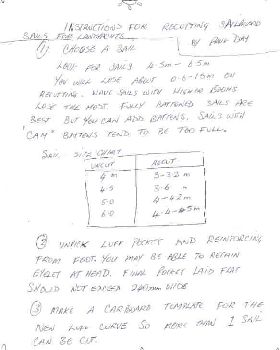 INSTRUCTIONS FOR RECUTTING SAILBOARD
SAILS FOR LANDYACHTS
BY PAUL DAY
1) CHOOSE A SAIL
LOOK FOR SAILS 4.5m - 6.5m
YOU WILL LOSE ABOUT 0.6-1.5m ON
RECUTTING. WAVE SAILS WITH HIGHER BOOMS
LOSE THE MOST. FULLY BATTENED SAILS ARE
BEST BUT YOU CAN ADD BATTENS. SAILS WITH
"CAM" BATTENS TEND TO BE TOO FULL.
SAIL SIZE CHART
UNCUT RECUT
4 m 3-3.2 m
4.5 3.6 "
5.0 4-4.2 m
6.0 4.4-4.5m
2) UNPICK LUFF POCKET AND REINFORCING
FROM FOOT. YOU MAY BE ABLE TO RETAIN
EYELET AT HEAD. FINAL POCKET LAID FLAT
SHOULD NOT EXCEED WIDE
3) MAKE A CARBOARD TEMPLATE FOR THE
NEW LUFF CURVE SO MORE THAN 1 SAIL
CAN BE CUT.